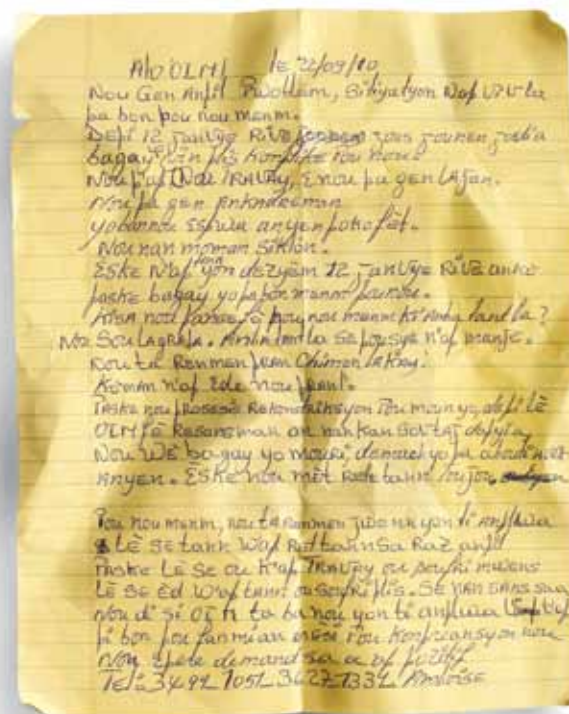 Alo OIM le 22/09/10
Nou Gen Anpil Pwoblem, Sitiyatyon Nap viv la
pa bon pou nou menm.
DEPI 12 Janvye Rive jous jounen jodi a
bagay vin pis Komplike Pou nou.
Nou p'ap TRAVAY, E nou pa gen lajan.
Nou pa gen Ankadreman
yo bannou Espwa anyen poko fèt.
Nou nan moman Siklon.
Eske N'ap yon dezyèm 12 Janvye Rive ankò
paske bagay yo pa bon menm pou nou.
Kisa nou panse fè pou nou menm ki anba tant la?
Nou ta Renmen pran Chimen LaKay.
Koman n'ap Ede nou pran l.
Paske nou Rekonstriksyon Pou moun yo, depi lè
OIM fè Resansman an nan kan
Nou wè bagay yo mouri, demach yo pa
Anyen. Eske nou mèt Rete tann toujou
Pou nou menm, nou ta Renmen jwenn yon ti anplwa
Lè se tann W'ap Ret tann Sa Raz anpil
Paske Lè se ou K'ap TRAVAY ou soufri mwens
Lè se Ed W'ap tann ou soufri plis. SE NAN SANS saa
Nou di si OIM ta ba nou yon ti anplwa
pi bon pou fanmi an Mèsi Pou Konpreansyon nou
Nou Espere demand sa a ap pozitif
Tel: 34 92 7051 3627 7332 Ambroise